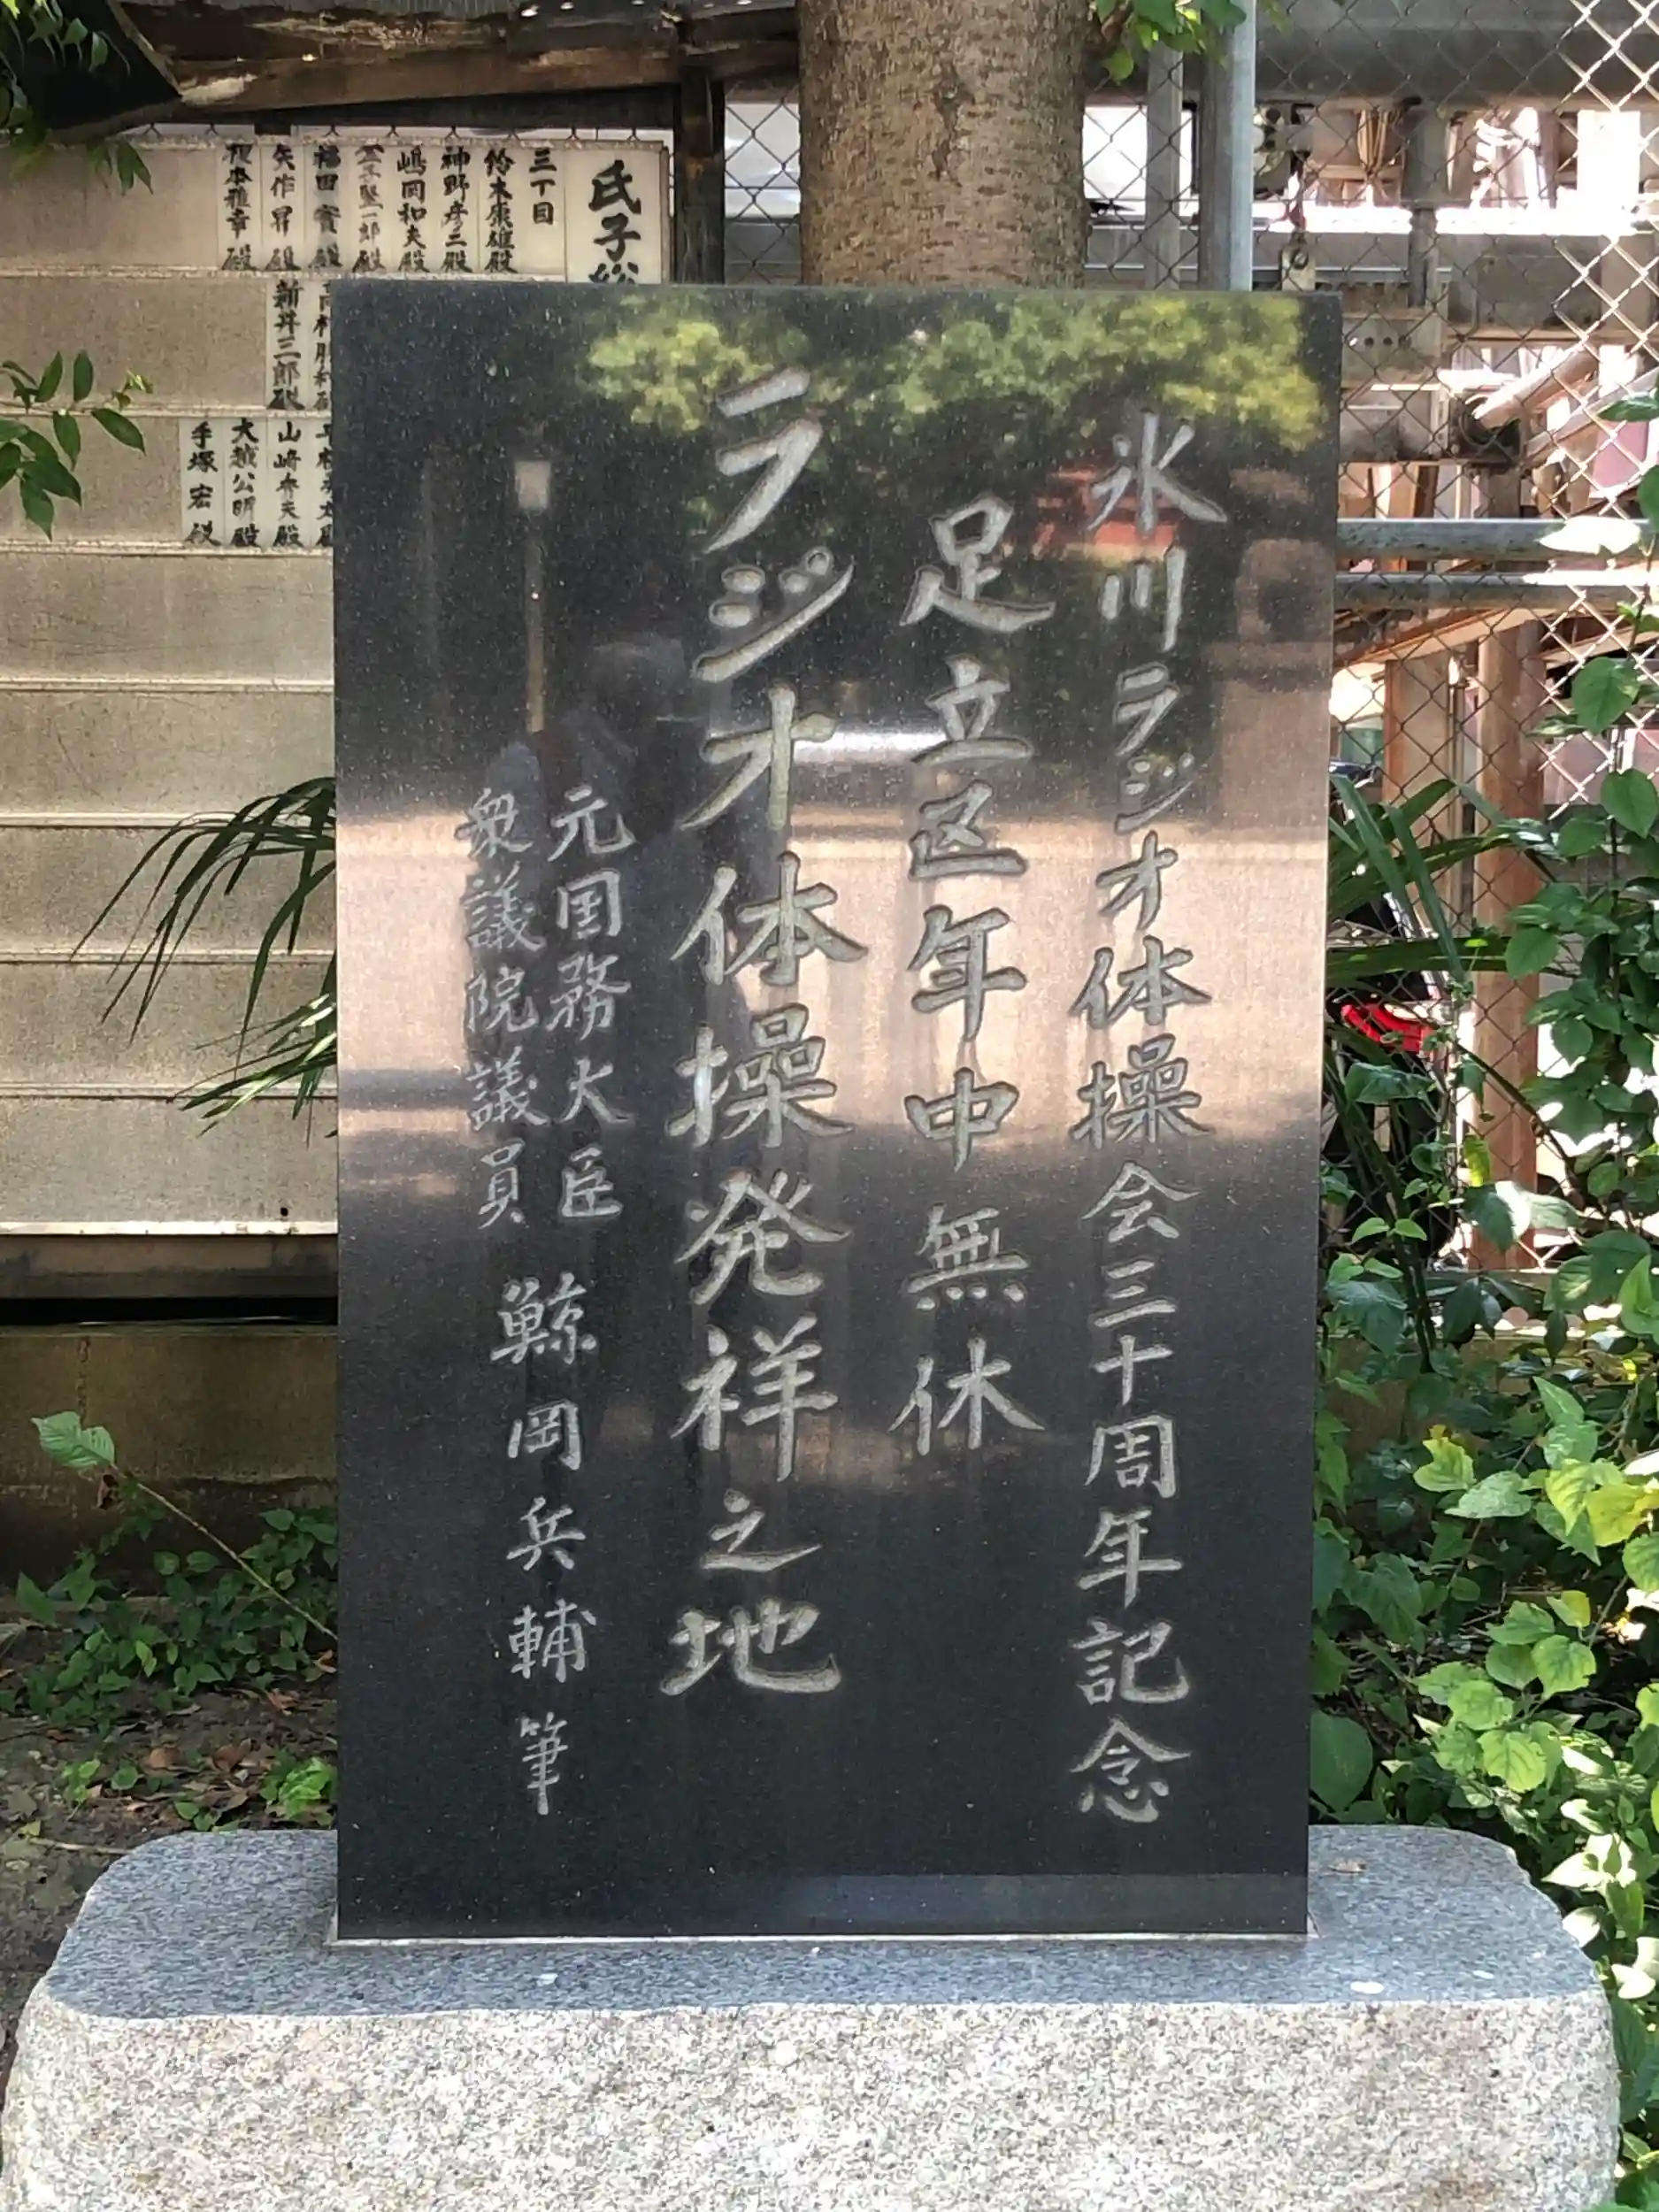 氷川ラジオ体操会三十周年記念
足立区年中無休
ラジオ体操発祥之地
元国務大臣
衆議院議員
鯨岡兵輔筆
氏子総
三丁目
鈴木康雄殿
神野彦二殿
嶋岡和夫殿
福田實殿
矢作昇殿
新井三郎殿
山崎寿夫殿
大越公明殿
手塚宏殿